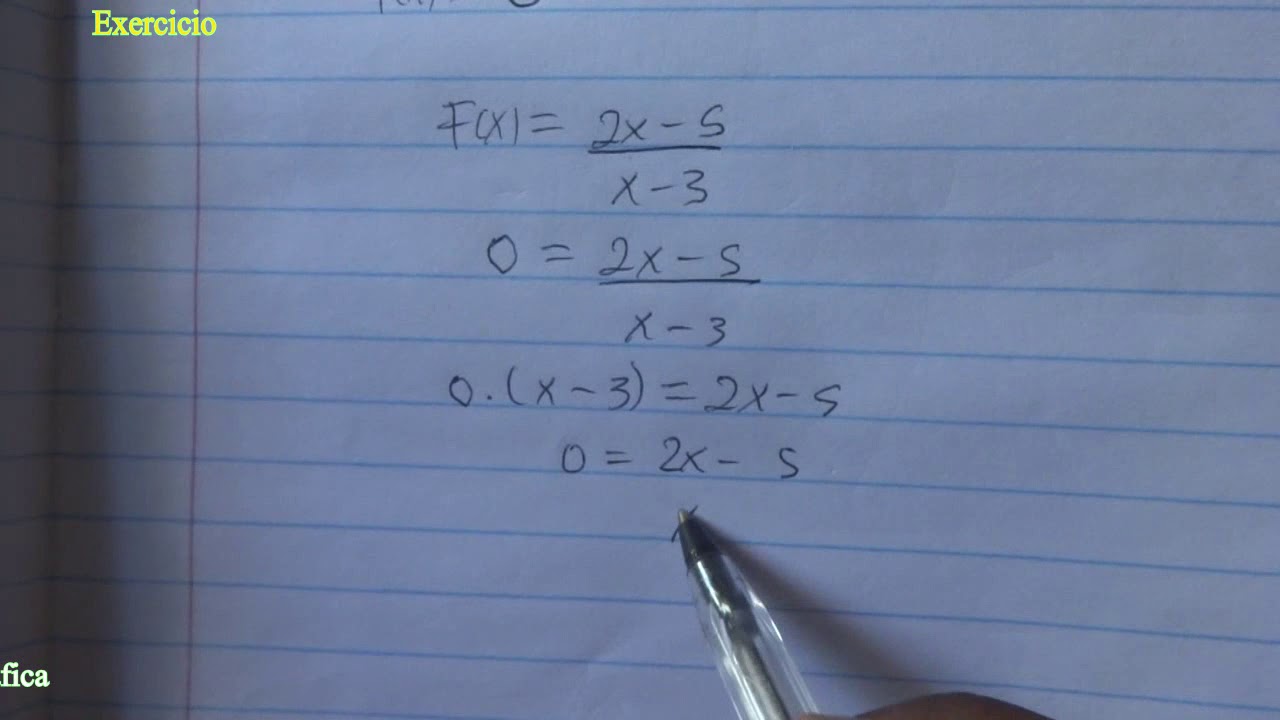 Exercicio
F(x) = 2x - 5
x - 3
0 = 2x - 5
x - 3
0 . (x - 3) = 2x - 5
0 = 2x - 5
x
fica